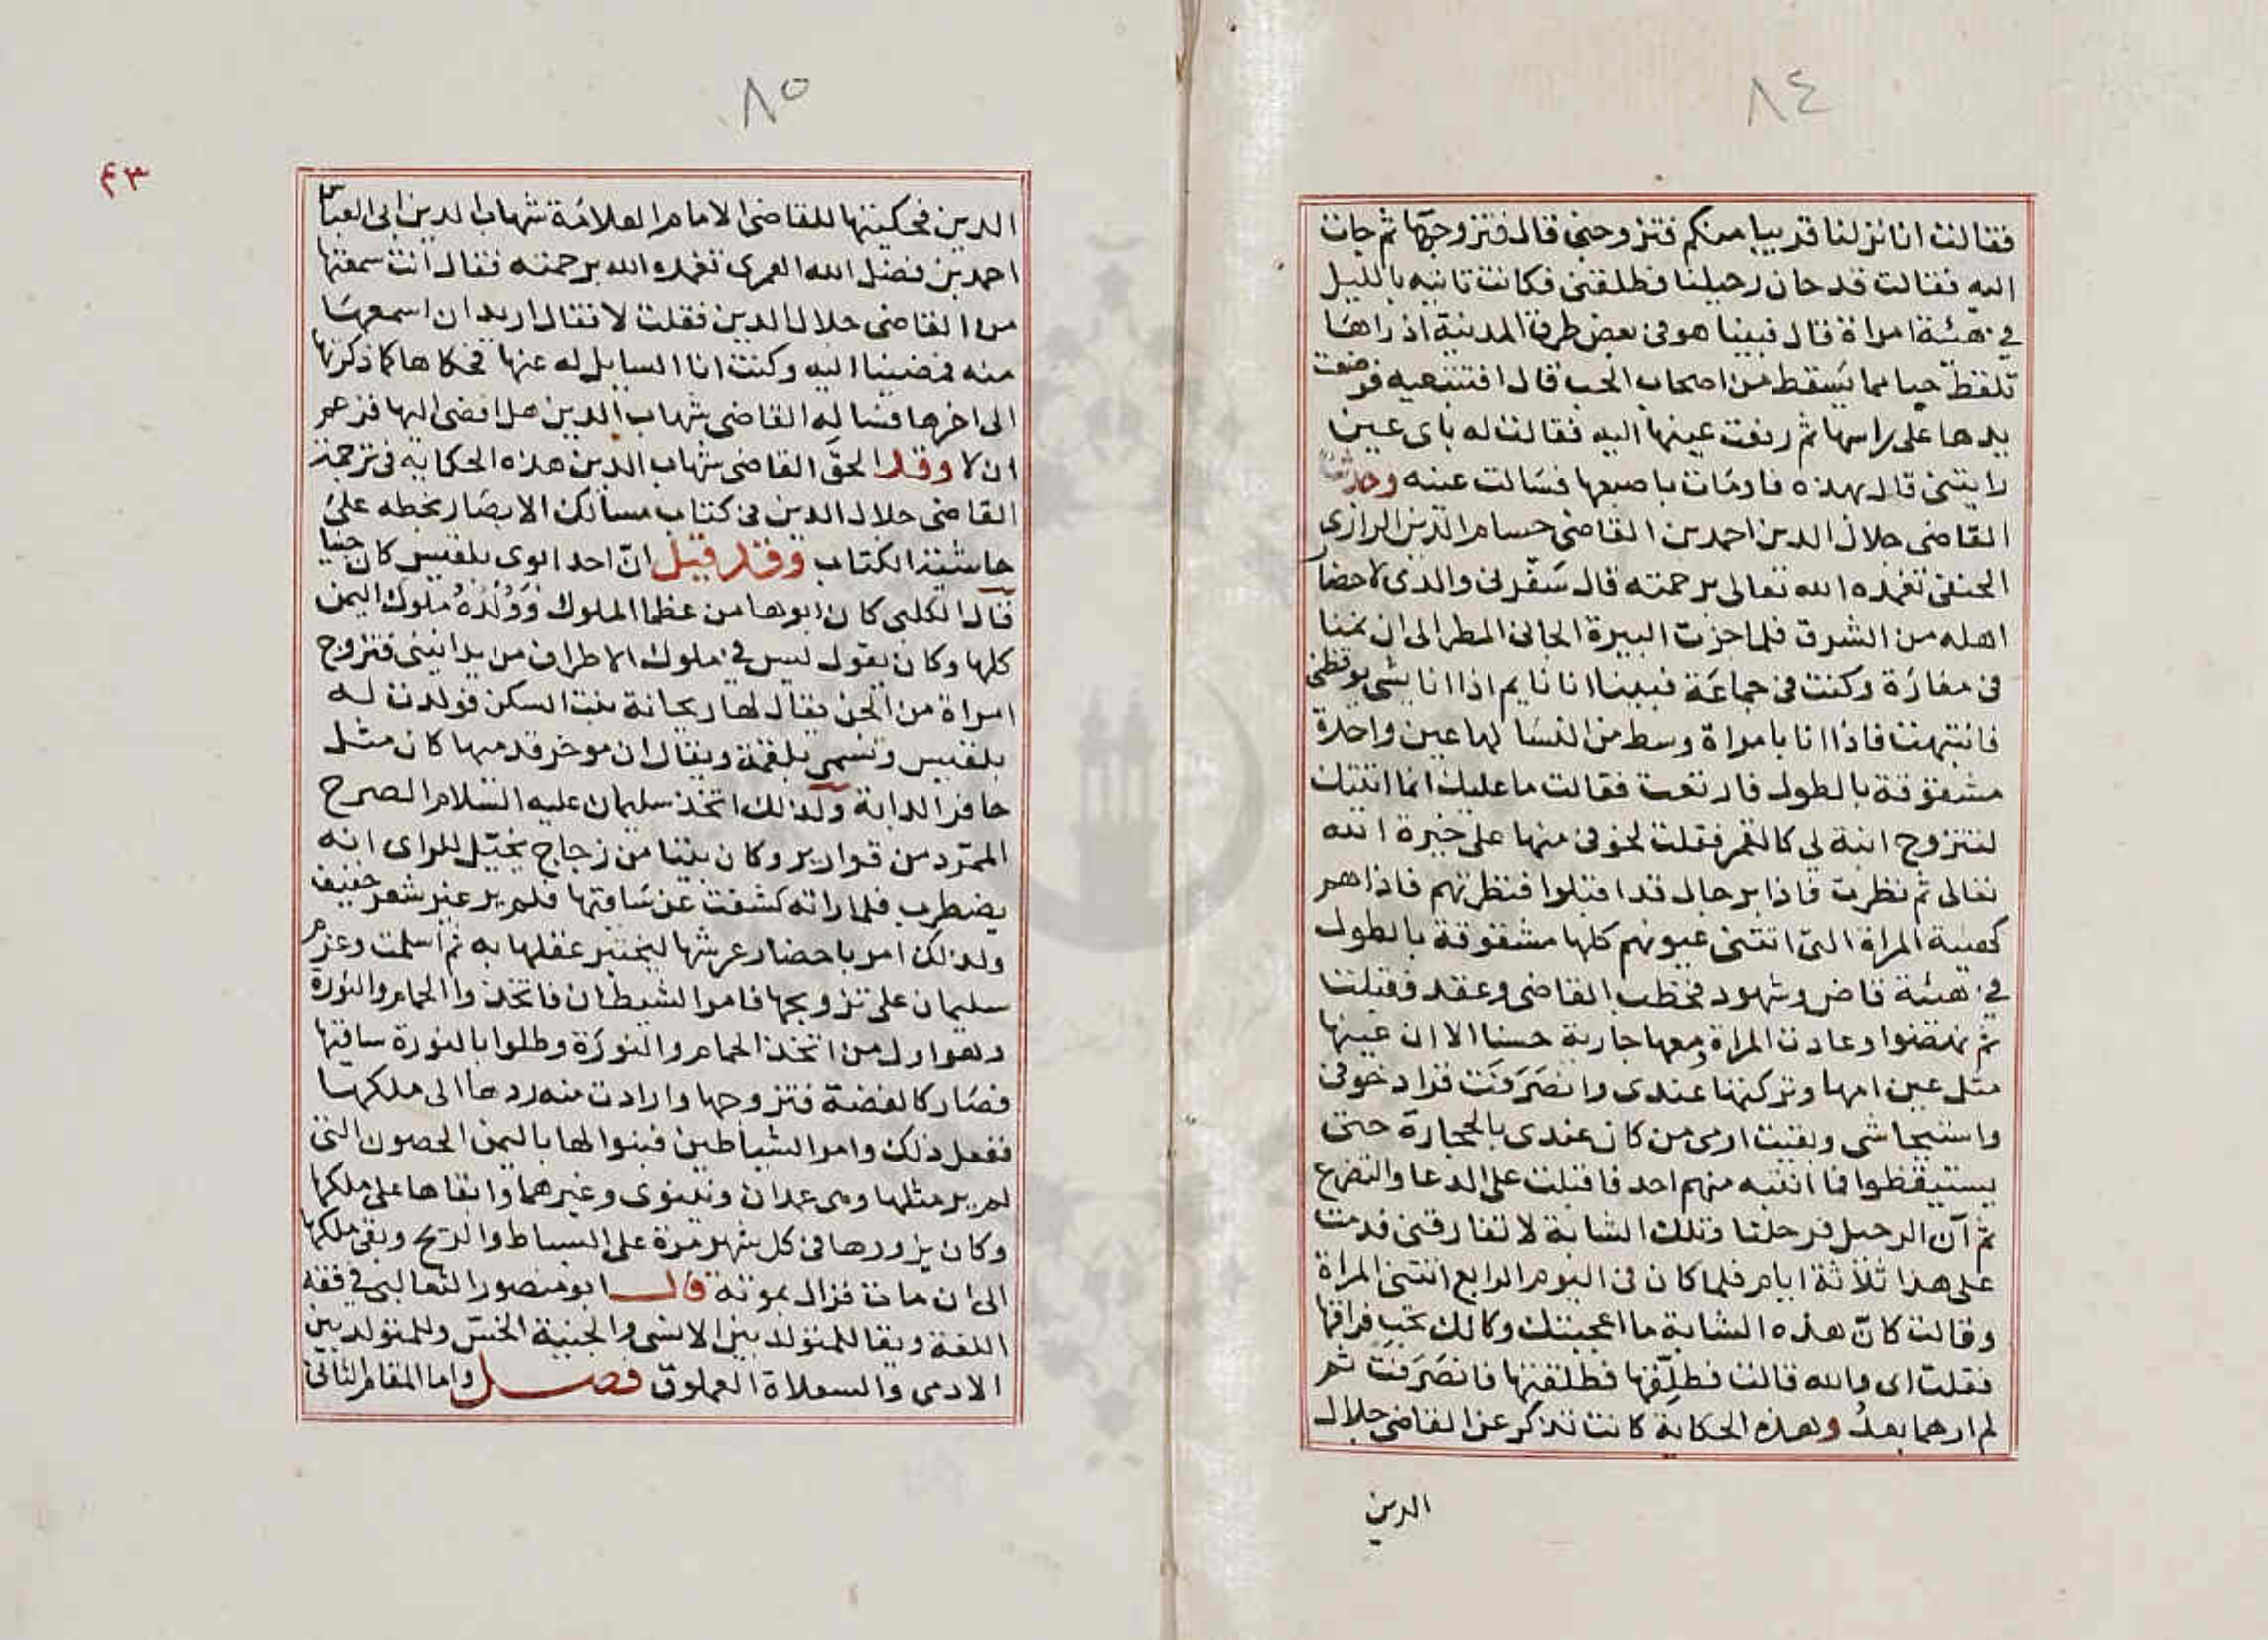 ٨٤
فقالت انا نزلنا قريبا منكم فتزوجني قال فتزوجها ثم جات
اليه فقالت قد حان رحيلنا فطلقني فكانت تاتيه بالليل
في هيئة امراة قال فبينا هو في بعض طرق المدينة اذ راها
تلقط حبا مما يسقط من اصحاب الحب قال افتتبعيه فوضعت
يدها على راسها ثم رفعت عينها اليه فقالت له باي عين
رايتني قال بهذه فاومات باصبعها فسالت عينه وحدثنا
القاضي جلال الدين احمد بن القاضي حسام الدين الرازي
الحنفي تغمده الله تعالى برحمته قال سفرني والدي لاحضار
اهله من الشرق فلما جزت البيرة الجانا المطر الى ان نمنا
في مغارة وكنت في جماعة فبينا انا نايم اذا انا بشي يوقظني
فانتبهت فاذا انا بامراة وسط من النسا لها عين واحدة
مشقوقة بالطول فارتعت فقالت ما عليك انما اتيتك
لتتزوج ابنة لي كالقمر فقلت لخوفي منها على خيرة الله
تعالى ثم نظرت فاذا برجال قد اقبلوا فنظرتهم فاذا هم
كهيئة المراة التي اتتني عيونهم كلها مشقوقة بالطول
في هيئة قاض وشهود فخطب القاضي وعقد فقبلت
ثم نهضوا وعادت المراة ومعها جارية حسنا الا ان عينها
مثل عين امها وتركتها عندي وانصرفت فزاد خوفي
واستيحاشي وبقيت ارمي من كان عندي بالحجارة حتى
يستيقظوا فما انتبه منهم احد فاقبلت على الدعا والتضرع
ثم آن الرحيل فرحلنا وتلك الشابة لا تفارقني فدمت
على هذا ثلاثة ايام فلما كان في اليوم الرابع اتتني المراة
وقالت كانّ هذه الشابة ما اعجبتك وكانك تحب فراقها
فقلت اي والله قالت فطلّقها فطلقتها فانصرفت ثم
لم ارهما بعد وهذه الحكاية كانت تذكر عن القاضي جلال
الدين
٨٥
٤٣
الدين فحكيتها للقاضي الامام العلامة شهاب الدين ابي العباس
احمد بن فضل الله العمري تغمده الله برحمته فقال انت سمعتها
من القاضي جلال الدين فقلت لا فقال اريد ان اسمعها
منه فمضينا اليه وكنت انا السايل له عنها فحكاها كما ذكرتها
الى اخرها فساله القاضي شهاب الدين هل افضى اليها فزعم
ان لا وقد الحق القاضي شهاب الدين هذه الحكاية في ترجمة
القاضي جلال الدين في كتاب مسالك الابصار بخطه على
حاشية الكتاب وقد قيل انّ احد ابوي بلقيس كان جنيا
قال الكلبي كان ابوها من عظما الملوك وَوُلْدُهُ ملوك اليمن
كلها وكان يقول ليس في ملوك الاطراف من يدانيني فتزوج
امراة من الجن يقال لها ريحانة بنت السكن فولدت له
بلقيس وتسمى بلقمة ويقال ان موخر قدميها كان مثل
حافر الدابة ولذلك اتخذ سليمان عليه السلام الصرح
الممرّد من قوارير وكان بيتا من زجاج يخيّل للراي انه
يضطرب فلما راته كشفت عن ساقيها فلم ير غير شعر خفيف
ولذلك امر باحضار عرشها ليختبر عقلها به ثم اسلمت وعزم
سليمان على تزويجها فامر الشيطان فاتخذوا الحمام والنورة
وهو اول من اتخذ الحمام والنورة وطلوا بالنورة ساقيها
فصار كالفضة فتزوجها وارادت منه ردها الى ملكها
ففعل ذلك وامر الشياطين فبنوا لها باليمن الحصون التي
لم ير مثلها وهي عمدان ونينوى وغيرهما وابقاها على ملكها
وكان يزورها في كل شهر مرة على البساط والريح وبقي ملكها
الى ان مات فزال بموته قال ابو منصور الثعالبي في فقه
اللغة ويقا للمتولد بين الانسي والجنية الخس وللمتولد بين
الادمي والسعلاة العملوق فصل واما المقام الثاني